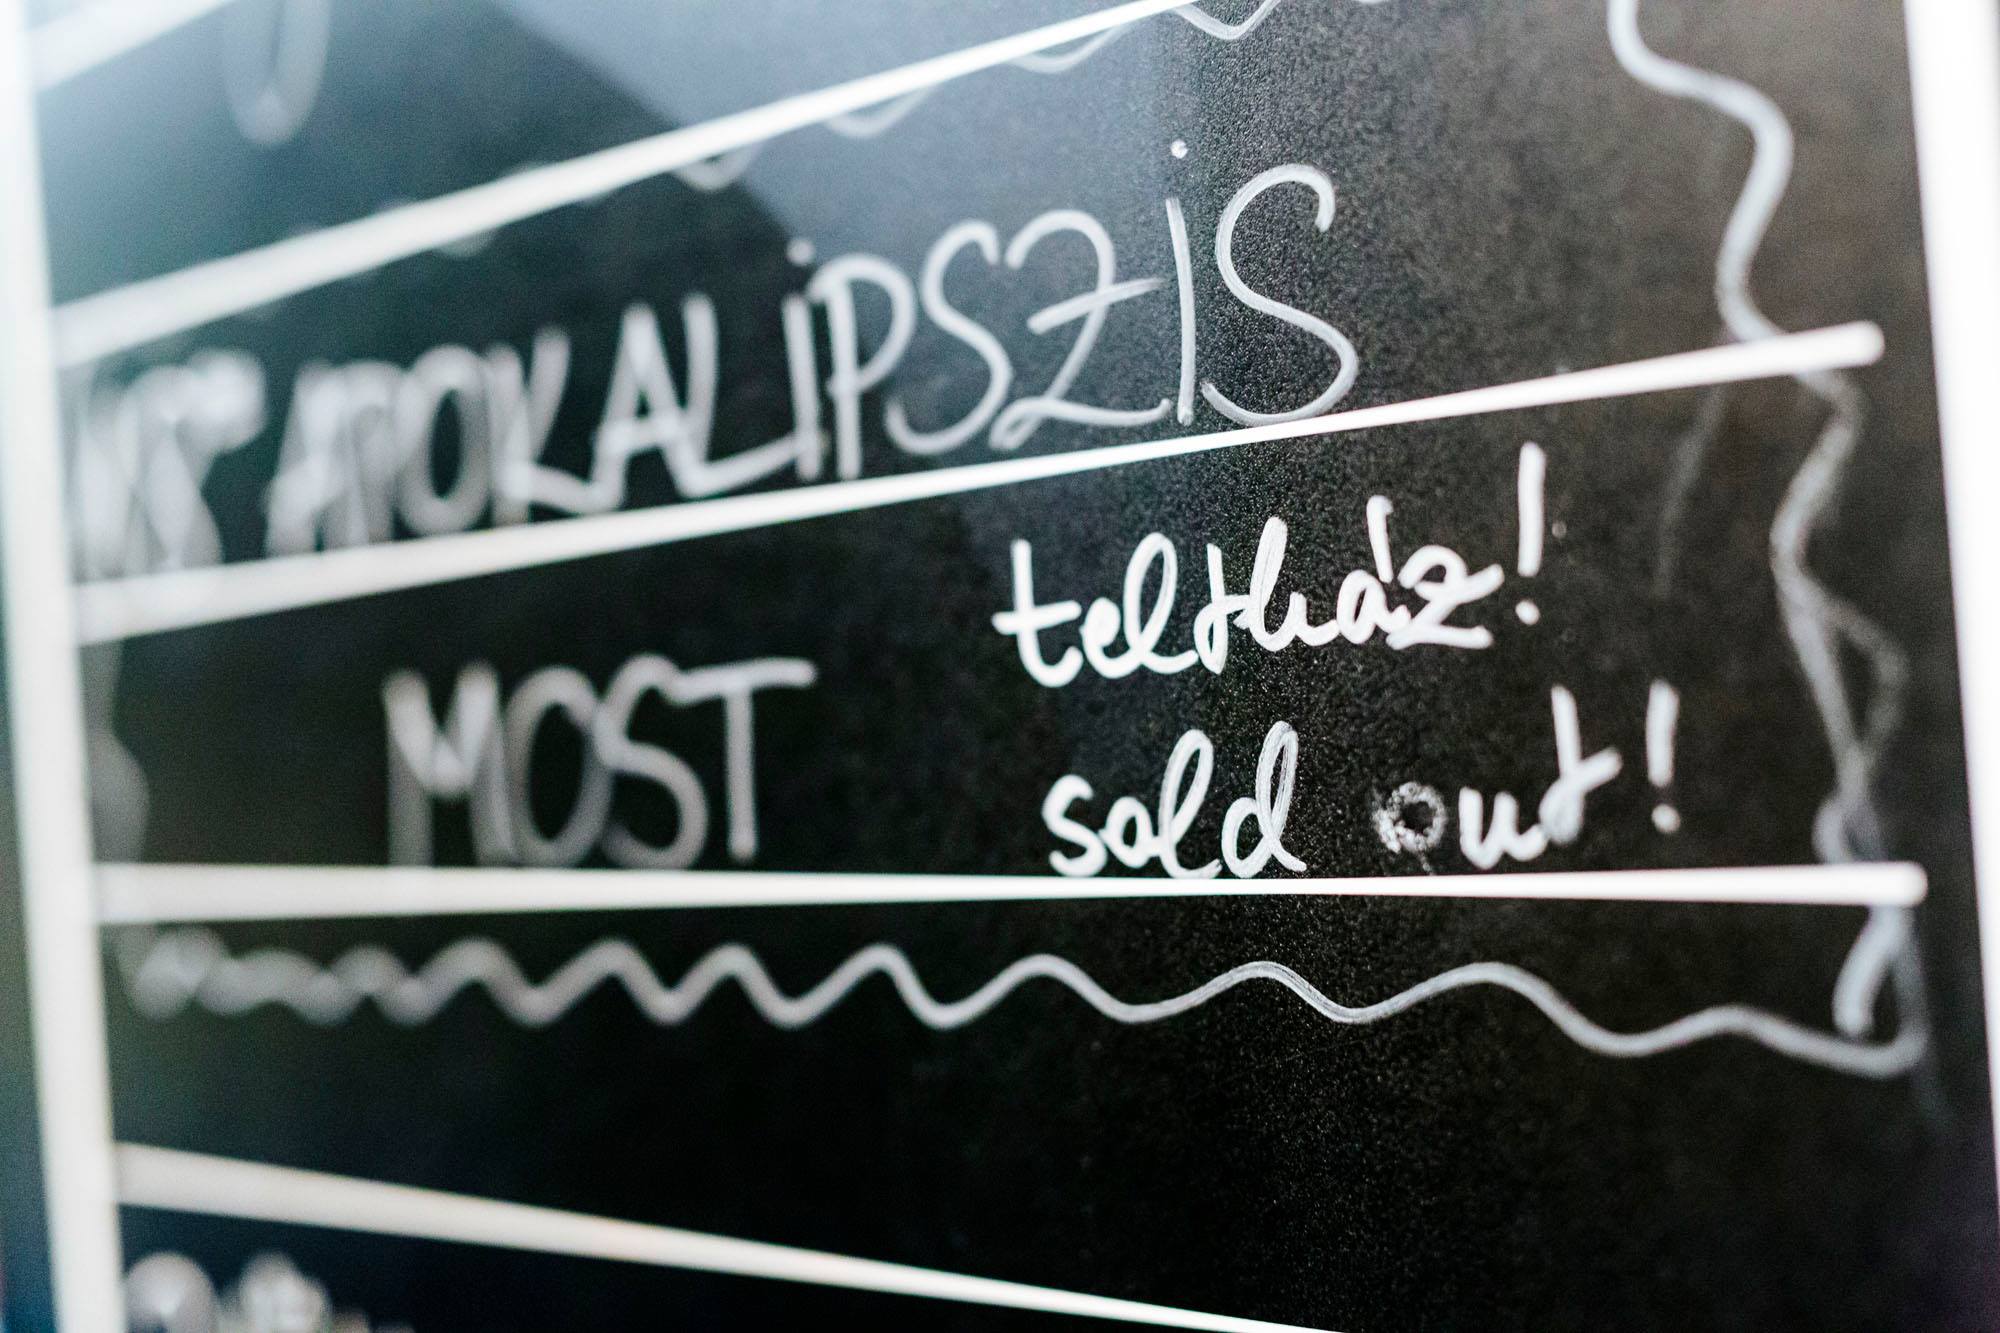 APOKALIPSZIS
MOST
teltház!
sold out!